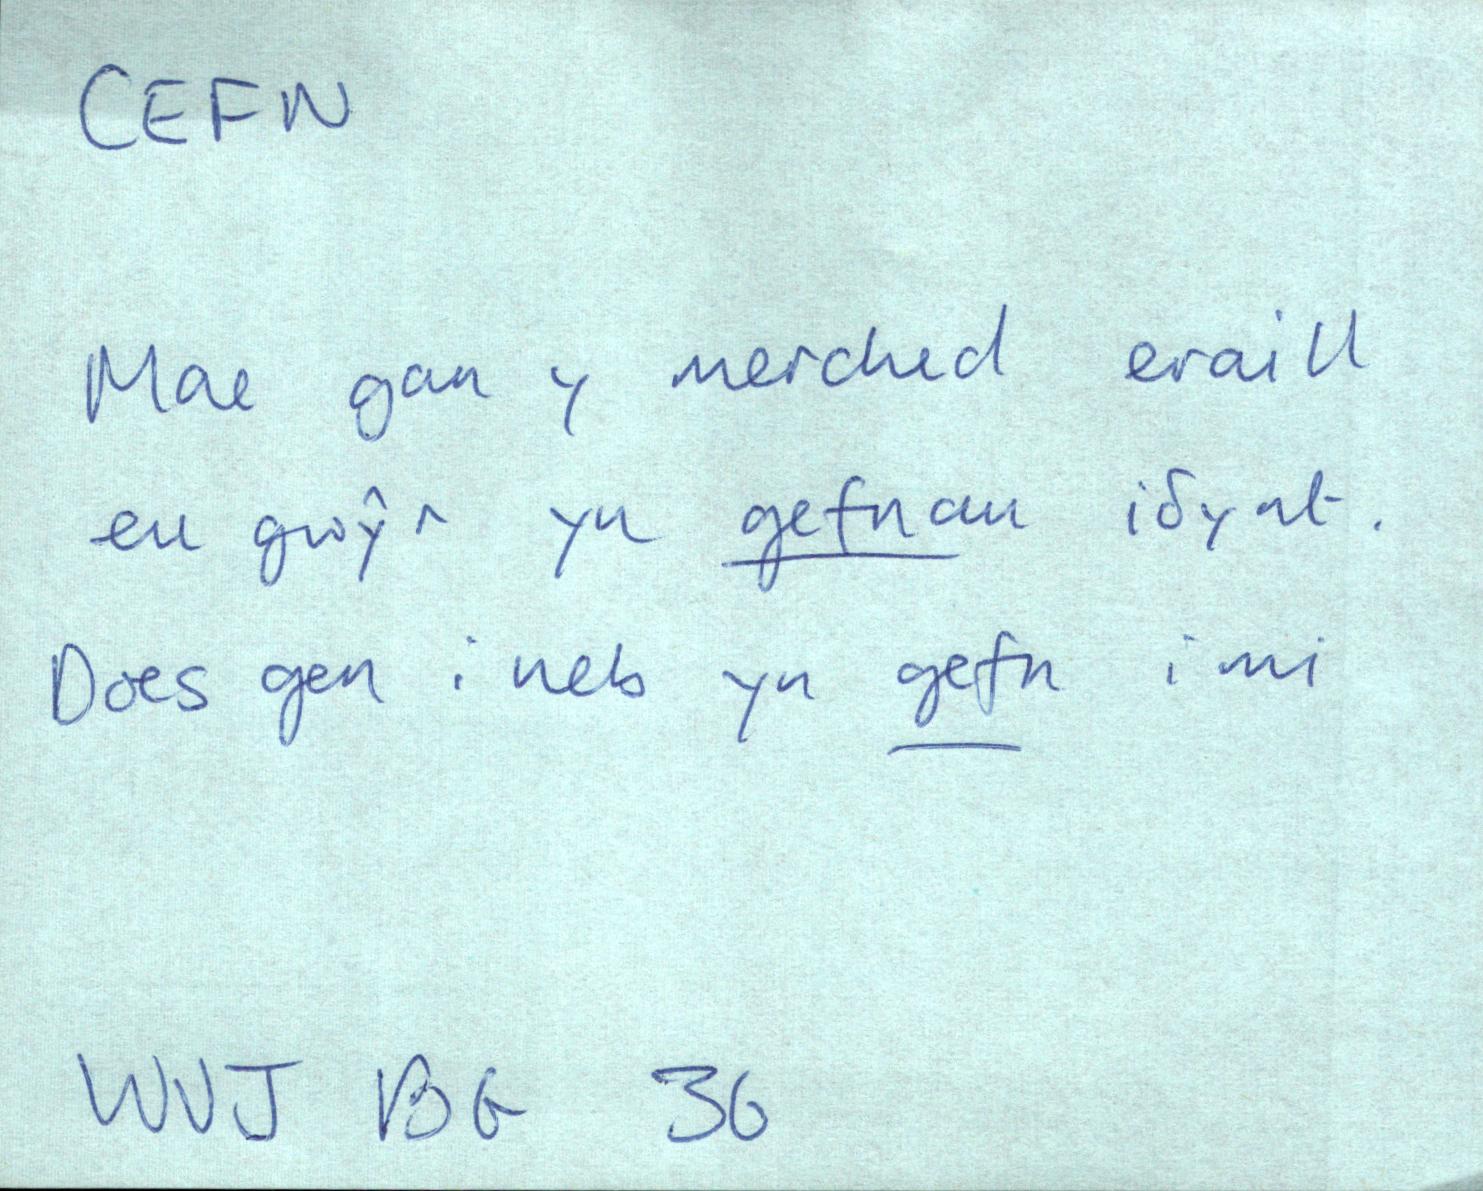 CEFN
Mae gan y merched eraill
eu gwŷr yn gefnau iδynt.
Does gen i neb yn gefn imi
WVJ BG 36